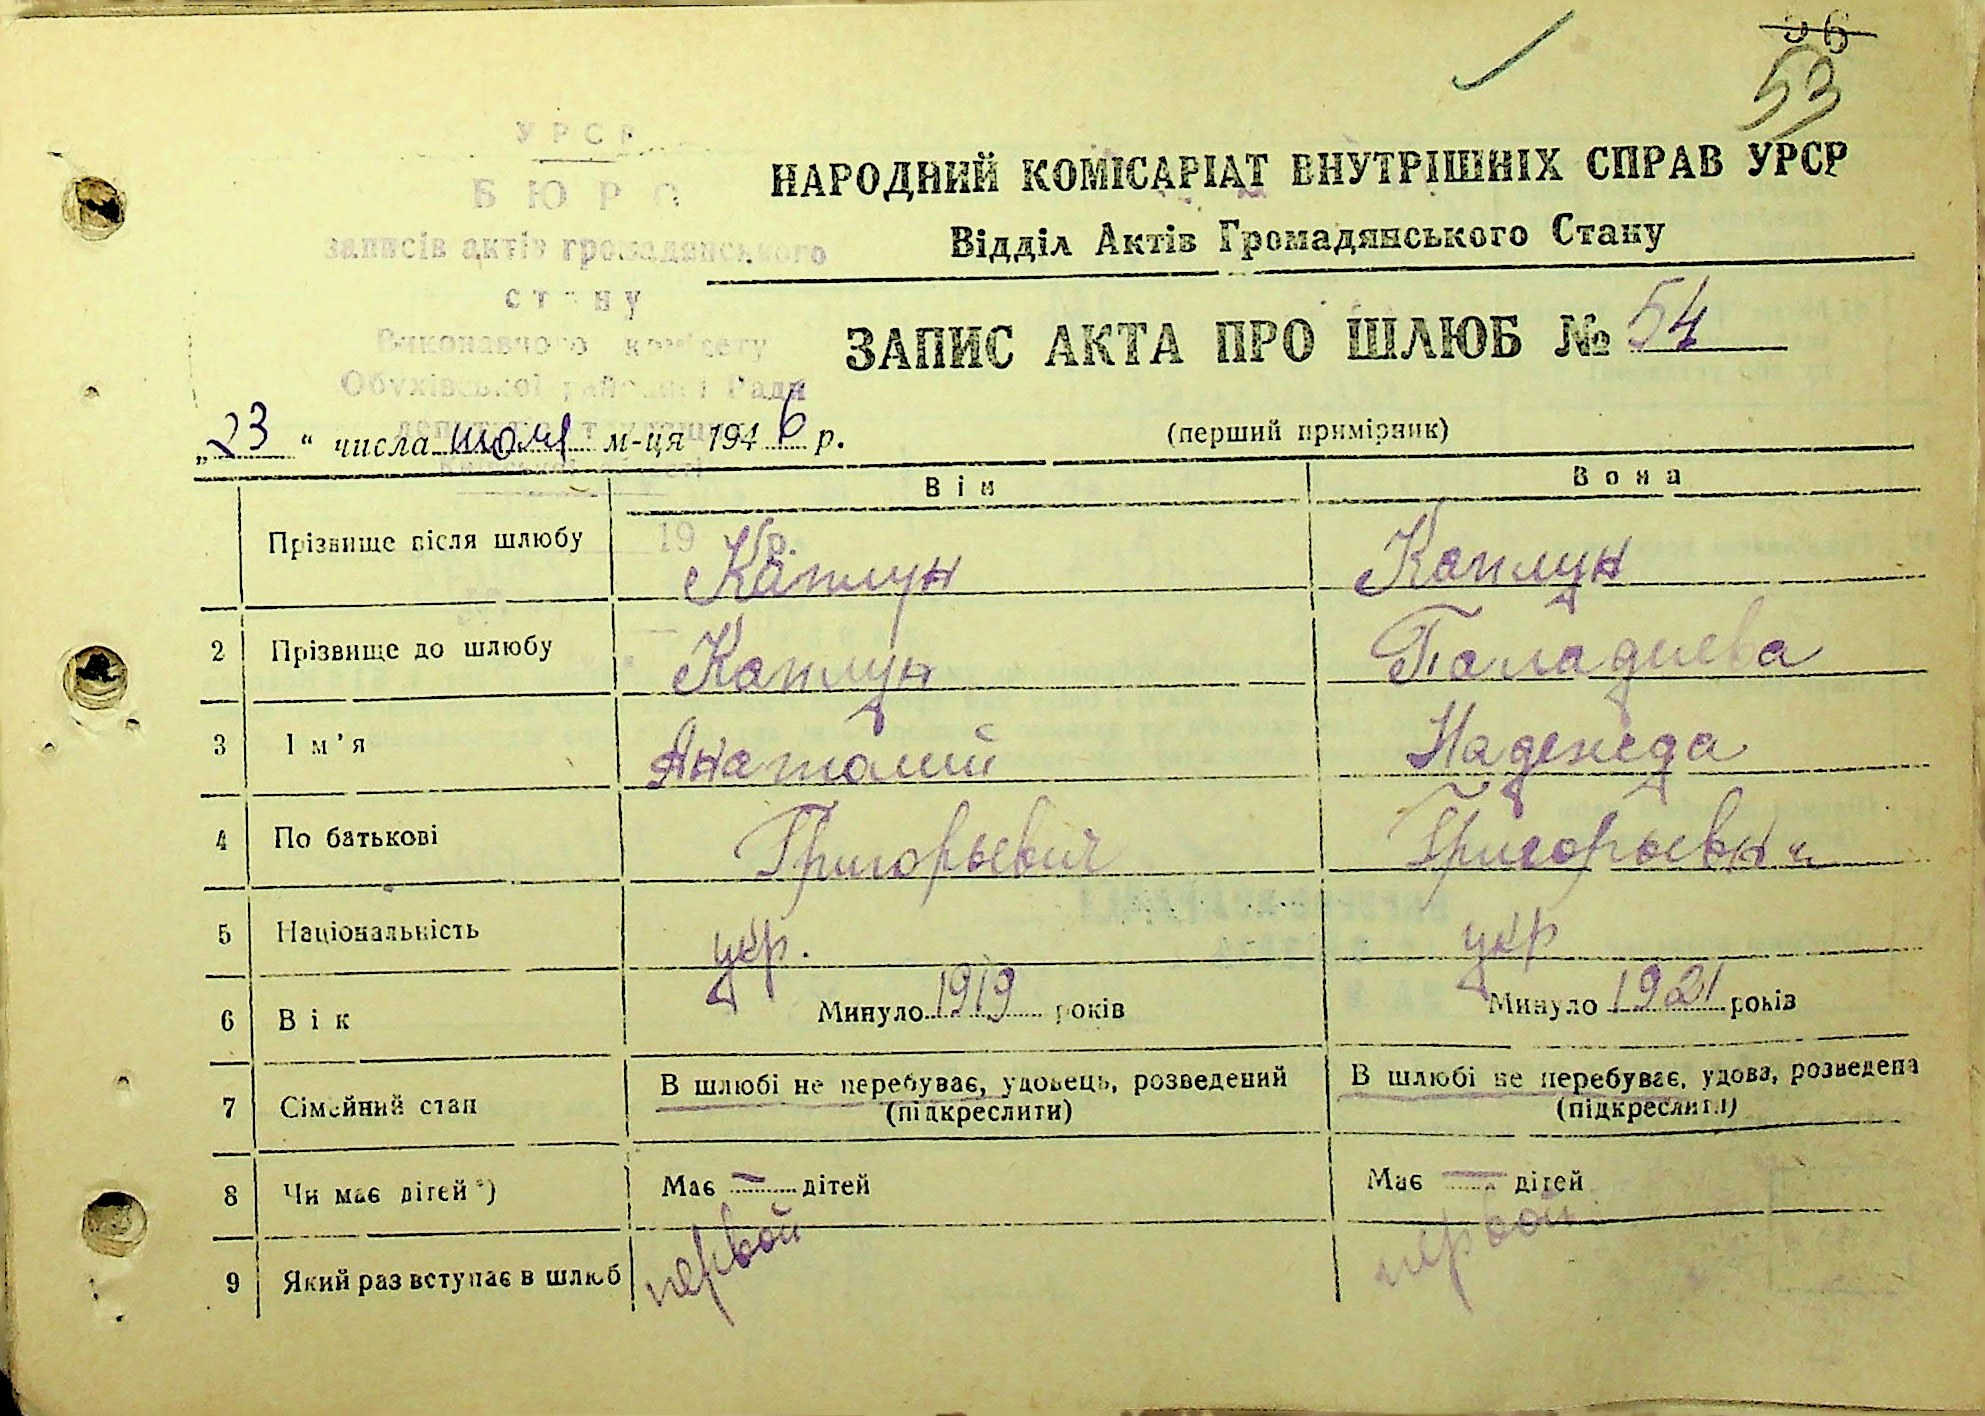 36
53
УРСР
БЮРО
записів актів громадянського
стану
Виконавчого комітету
Обухівської районної Ради
депутатів трудящих
Київської області
НАРОДНИЙ КОМІСАРІАТ ВНУТРІШНІХ СПРАВ УРСР
Відділ Актів Громадянського Стану
ЗАПИС АКТА ПРО ШЛЮБ № 54
„23“ числа июля м-ця 1946 р.
(перший примірник)
Він Вона
19 р.
Прізвище після шлюбу Каплун Каплун
2 Прізвище до шлюбу Каплун
3 Ім’я Анатолий Надежда
4 По батькові Григорьевич Григорьевн
5 Національність укр. укр
6 Вік Минуло 1919 років Минуло 1921 років
7 Сімейний стан В шлюбі не перебуває, удовець, розведений В шлюбі не перебуває, удова, розведена
(підкреслити) (підкреслити)
8 Чи має дітей*) Має — дітей Має — дітей
9 Який раз вступає в шлюб первой первой